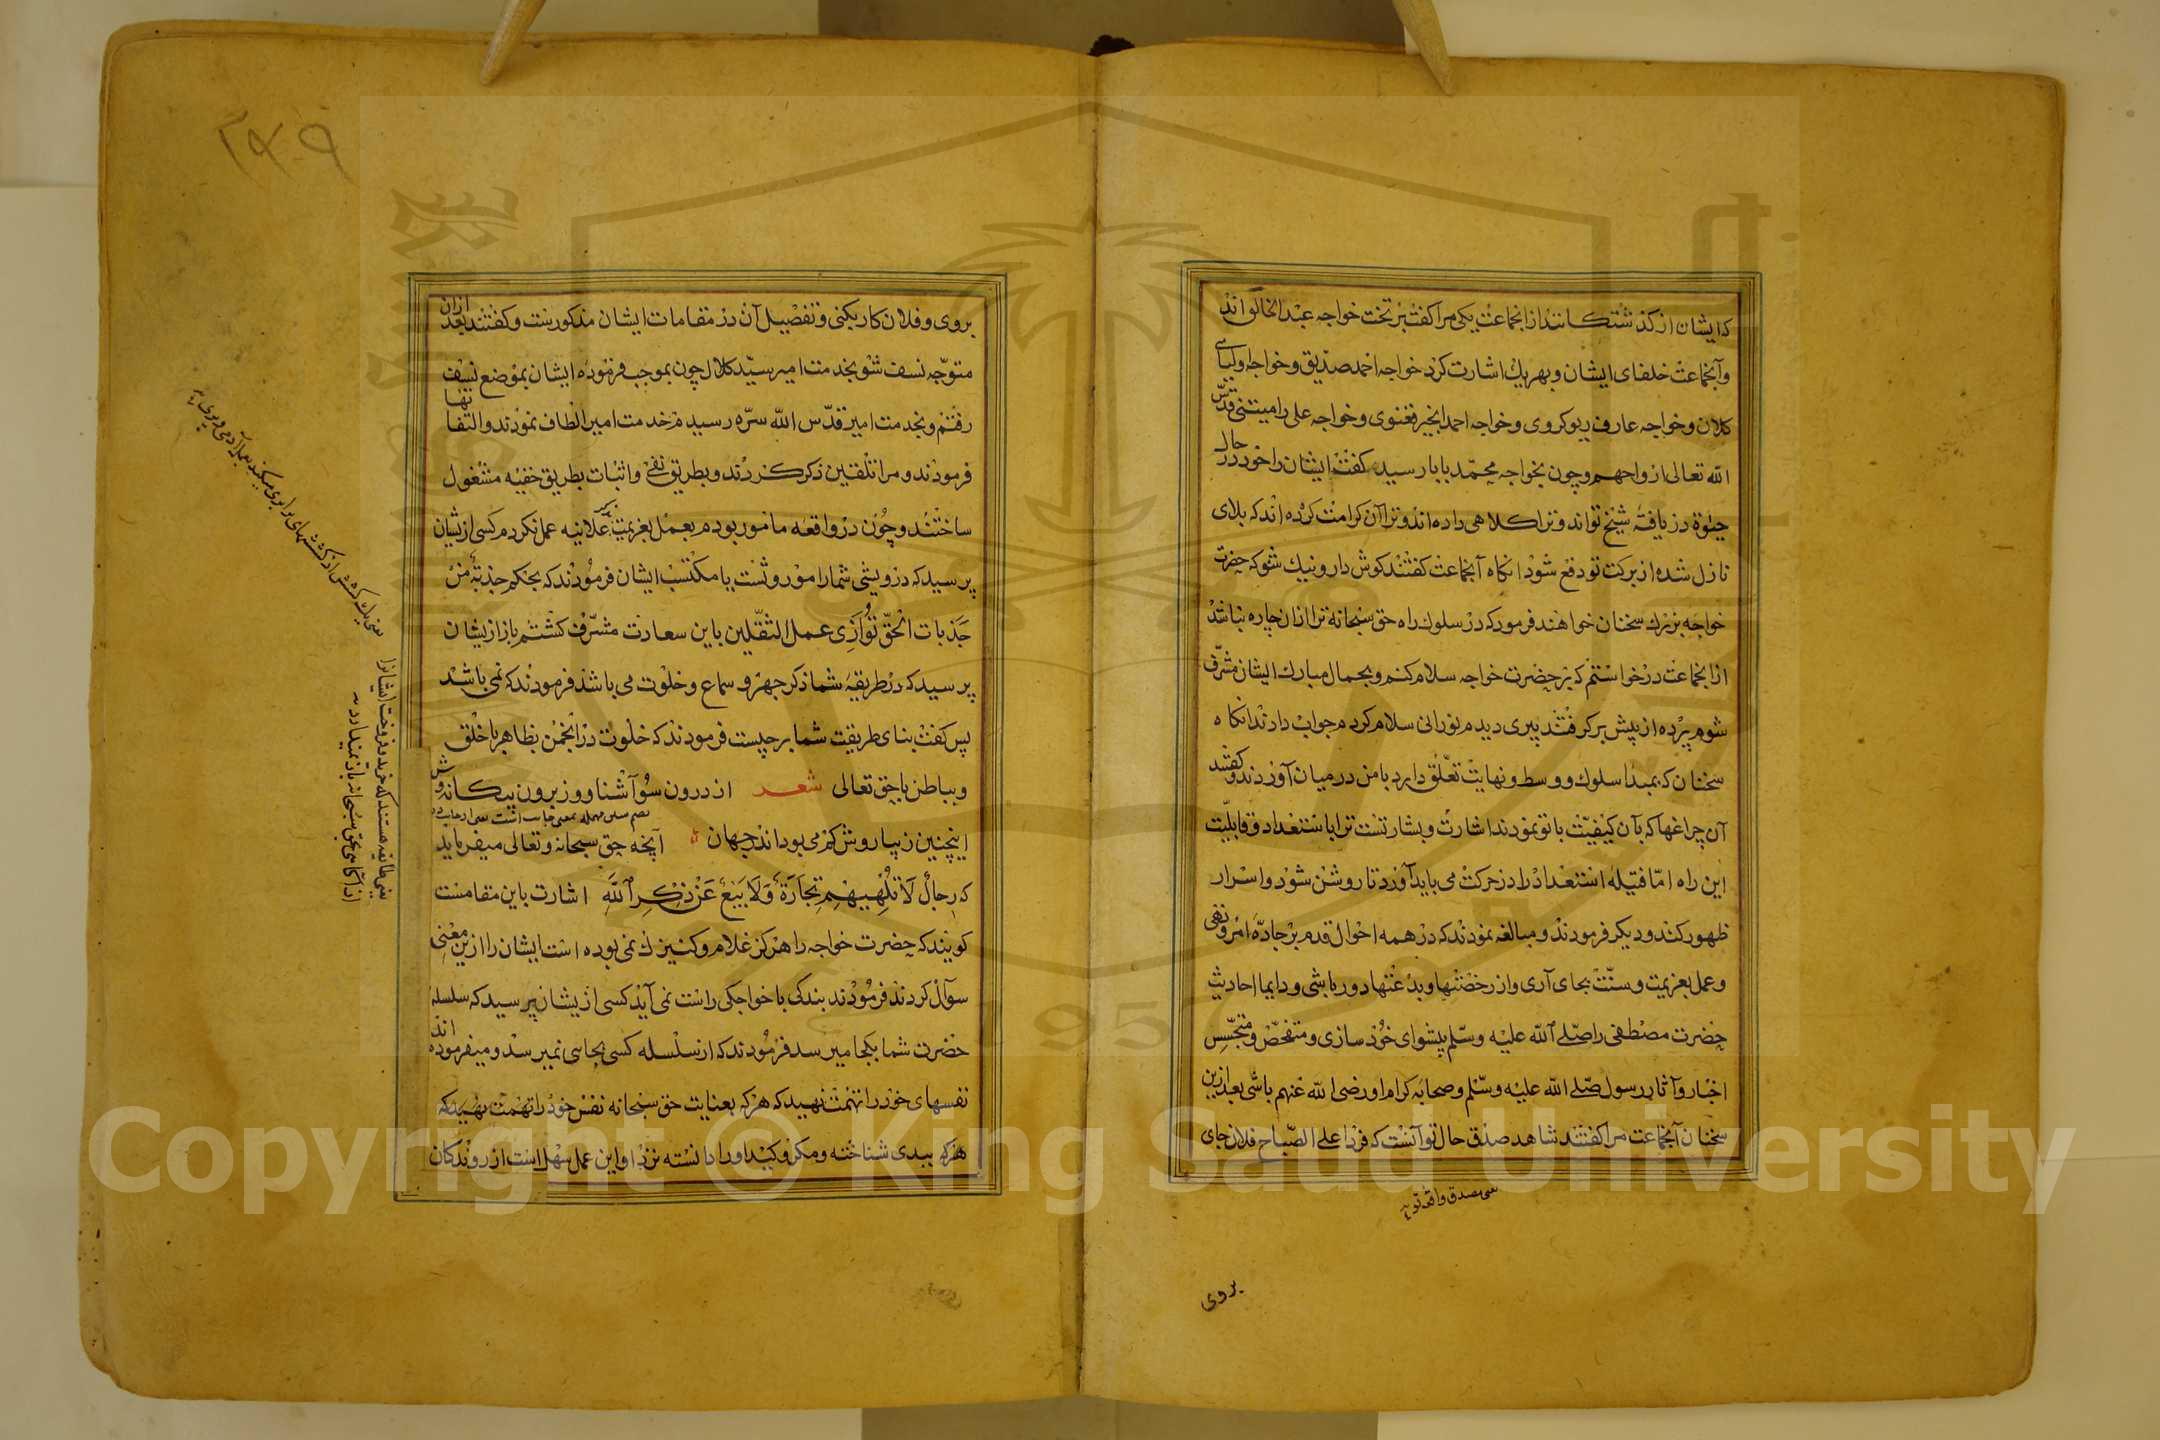 که ایشان از کذشتکانند از انجماعت یکی مرا کفت بر تخت خواجه عبد الخالق اند
وآنجماعت خلفای ایشان وبهریك اشارت کرد خواجه احمد صدیق وخواجه اولیای
کلان وخواجه عارف ریوکروی وخواجه احمد انجیر فغنوی وخواجه علی رامیتنی قدّس
الله تعالی ارواحهم وچون بخواجه محمّد بابا رسید کفت ایشان را خود در حال
حیوة دریافتهٔ شیخ تواند وترا کلاهی داده اند وترا آن کرامت کرده اند که بلای
نازل شده از برکت تو دفع شود انکاه آنجماعت کفتند کوش دار ونیك شنو که حضرت
خواجه بزرك سخنان خواهند فرمود که در سلوك راه حق سبحانه ترا ازان چاره نباشد
از انجماعت درخواستم که بر حضرت خواجه سلام کنم وبجمال مبارك ایشان مشرّف
شوم پرده از پیش بر کرفتند پیری دیدم نورانی سلام کردم جواب دادند انکاه
سخنان که بمبدا سلوك ووسط ونهایت تعلّق دارد با من در میان آوردند وکفتند
آن چراغها که بآن کیفیّت با تو نمودند اشارت وبشارتست ترا باستعداد وقابلیّت
این راه امّا فتیلهٔ استعداد را در حرکت می باید آورد تا روشن شود واسرار
ظهور کنند ودیکر فرمودند ومبالغه نمودند که در همه احوال قدم بر جادّهٔ امر ونهی
وعمل بعزیمت وسنّت بجای آری واز رخصتها وبدعتها دور باشی ودایما احادیث
حضرت مصطفی را صلّی الله علیه وسلّم پیشوای خود سازی ومتفحّص ومتجسّس
اخبار وآثار رسول صلّی الله علیه وسلّم وصحابه کرام او رضی الله عنهم باشی بعد ازین
سخنان آنجماعت مرا کفتند شاهد صدق حال تو آنست که فردا علی الصّباح فلان جای
یعنی صدق واقعه تو
بروی
۲۴۹
بروی وفلان کار بکنی وتفصیل آن در مقامات ایشان مذکورست وکفتند بعد ازان
متوّجه نسف شو بخدمت امیر سیّد کلال چون بموجب فرمودهٔ ایشان بموضع نسف
رفتم وبخدمت امیر قدّس الله سرّه رسیدم خدمت امیر الطاف نمودند والتفاتها
فرمودند ومرا تلقین ذکر کردند وبطریق نفی واثبات بطریق خفیه مشغول
ساختند وچون در واقعه مامور بودم بعمل بعزیمت بذکر علانیه عمل نکردم کسی از یشان
پرسید که درویشی شما را موروثست یا مکتسب ایشان فرمودند که بحکم جذبةٌ من
جذبات الحقّ توازی عمل الثقّلین باین سعادت مشرّف کشتم باز از یشان
پرسید که در طریقهٔ شما ذکر جهر و سماع وخلوت می باشد فرمودند که نمی باشد
پس کفت بنای طریقت شما بر چیست فرمودند که خلوت در انجمن بظاهر با خلق
وبباطن با حق تعالی شعر از درون سو آشنا و وز برون بیکانه وش
اینچنین زیبا روش کم می بود اندر جهان آنچه حق سبحانه وتعالی میفرماید
که رجالٌ لا تلهیهم تجارة ولا بیع عن ذکر الله اشارت باین مقامست
کویند که حضرت خواجه را هرکز غلام وکنیزك نمی بوده است ایشان را ازین معنی
سوآل کردند فرمودند بندکی با خواجکی راست نمی آید کسی از یشان پرسید که سلسلهٔ
حضرت شما بکجا میرسد فرمودند که از سلسله کسی بجایی نمیرسد ومیفرموده اند
نفسهای خود را تهمت نهید که هرکه بعنایت حق سبحانه نفس خود را تهمت نهید که
هرکه ببدی شناخته ومکر وکید او را دانسته نزد او این عمل سهل است از روندکان
یعنی یك کشش از کششهای برابری میکند بعمل آدمی وپری
یعنی طائفه هستند که خرید وفروخت ایشانرا
از ذاکری حق سبحانه باز نمیدارد